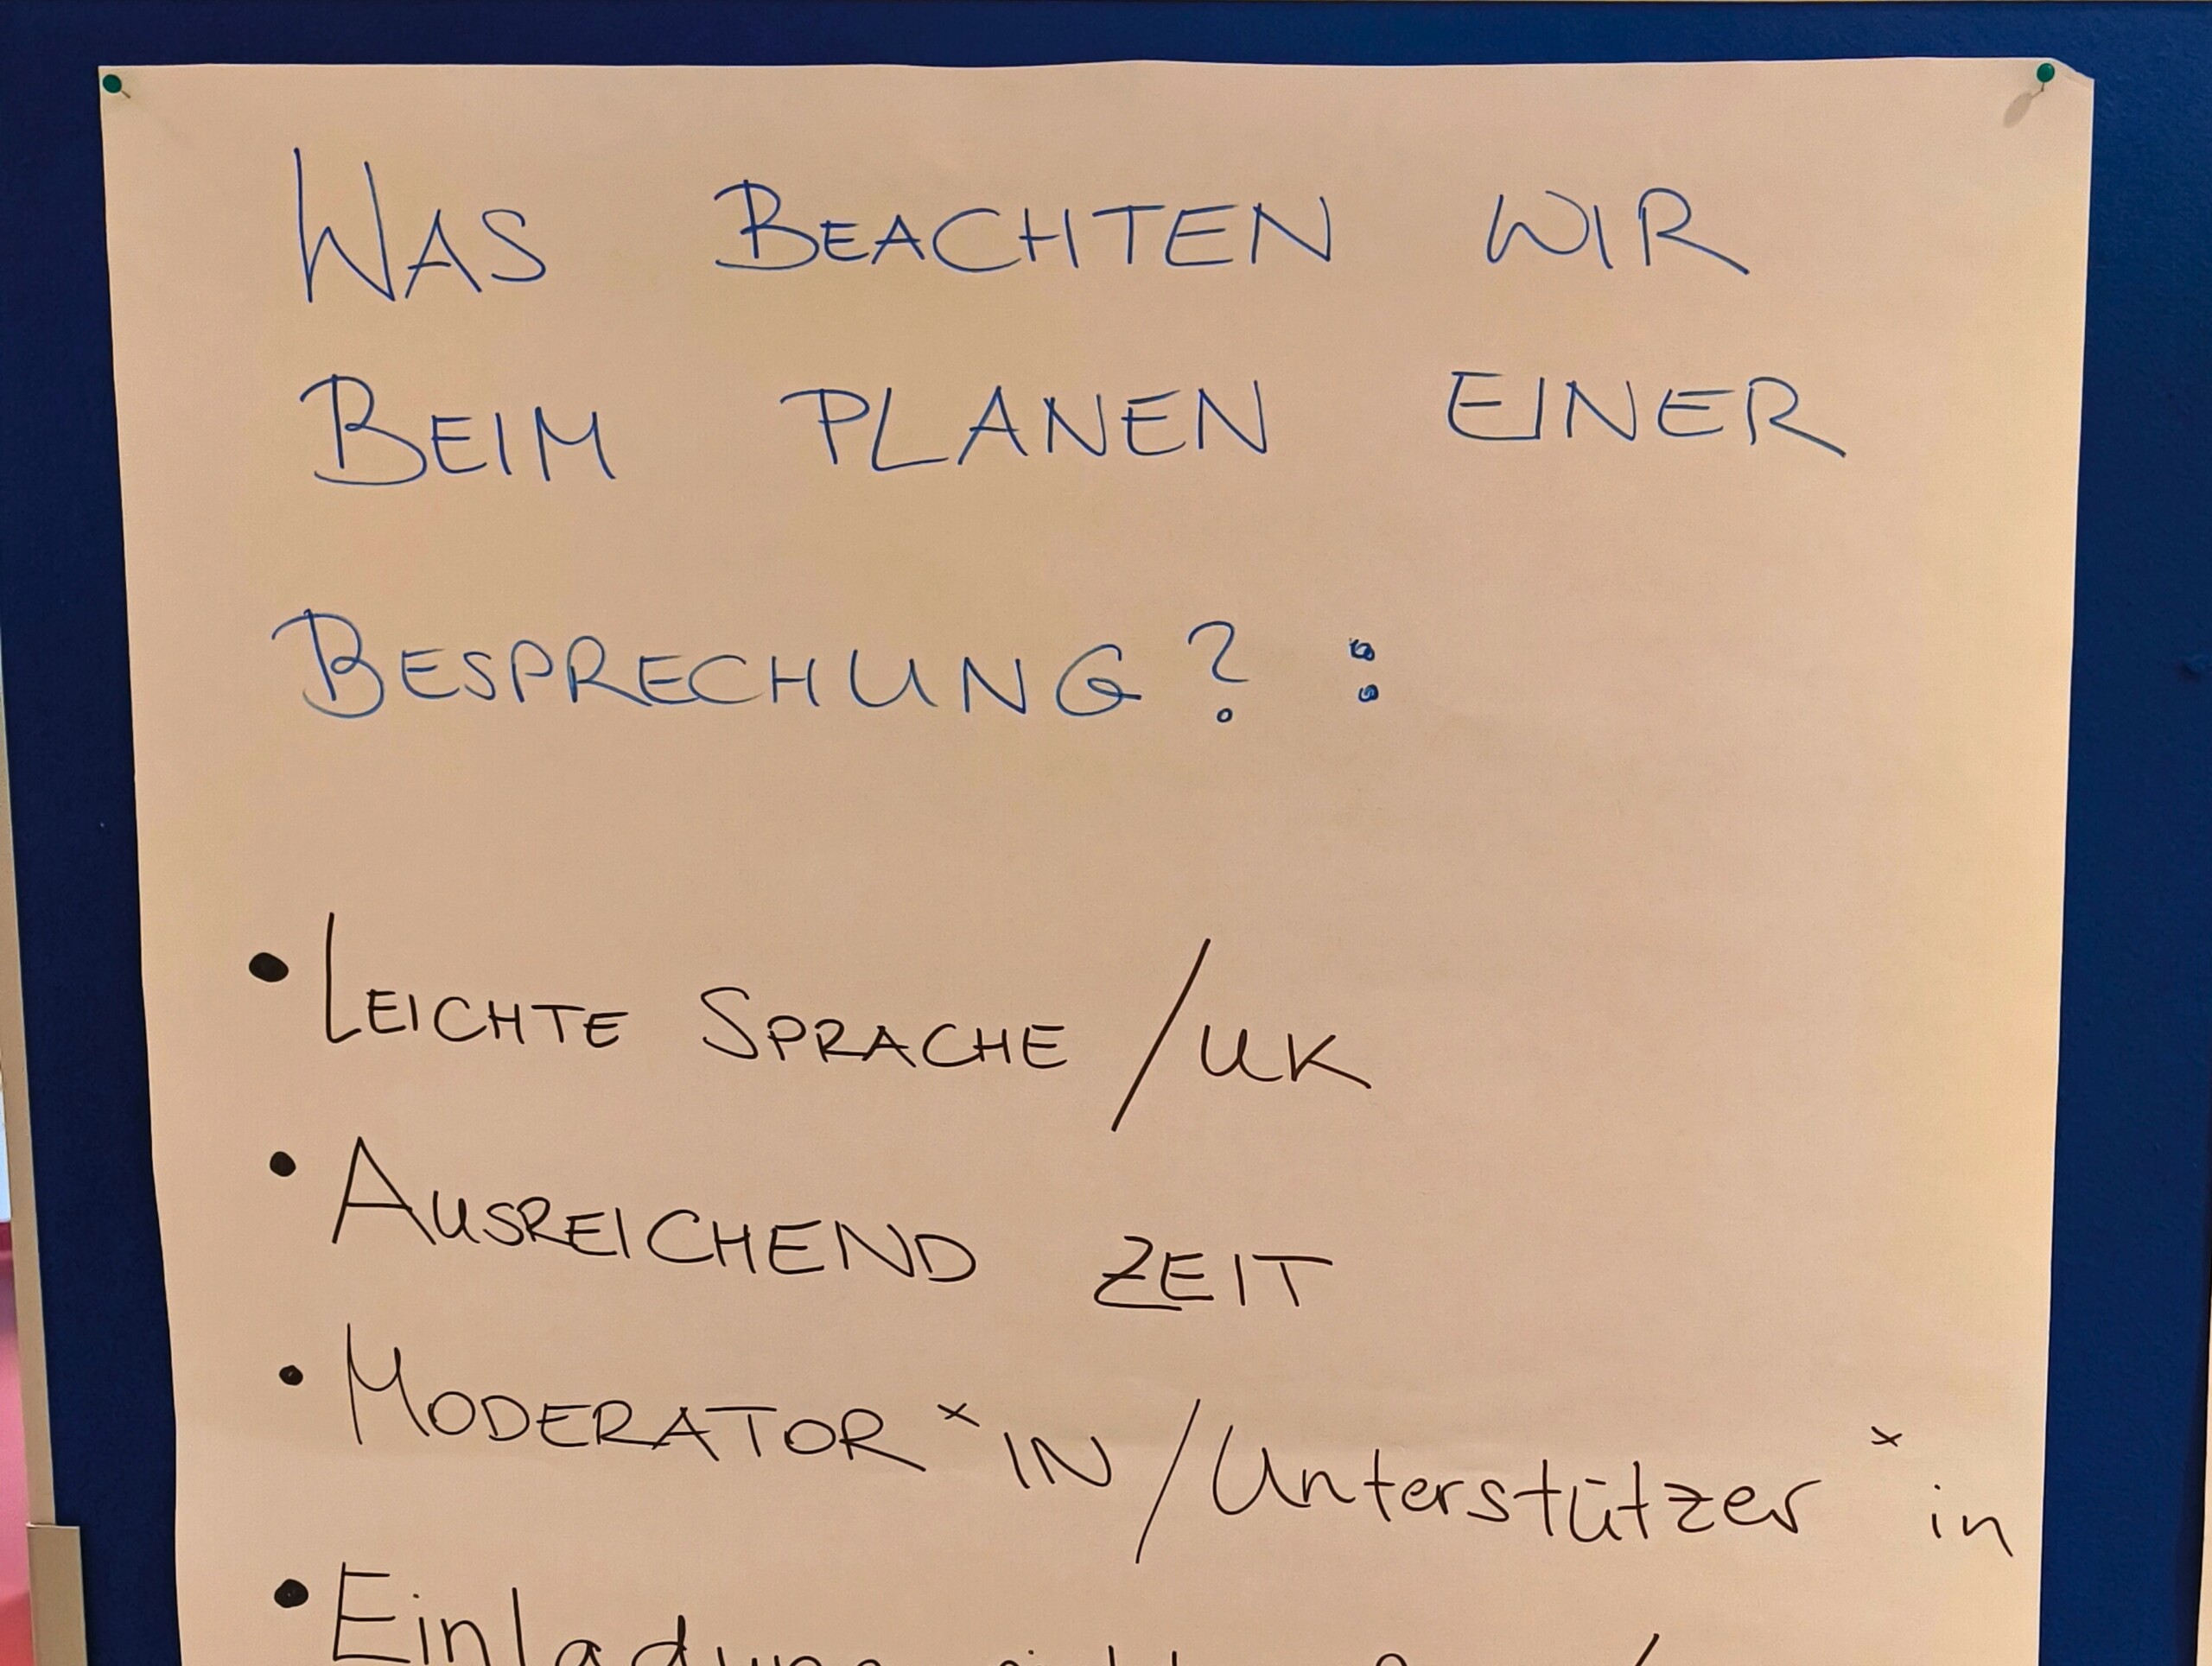 WAS BEACHTEN WIR
BEIM PLANEN EINER
BESPRECHUNG? :
• LEICHTE SPRACHE / UK
• AUSREICHEND ZEIT
• MODERATOR*IN / Unterstützer*in
• Einladung